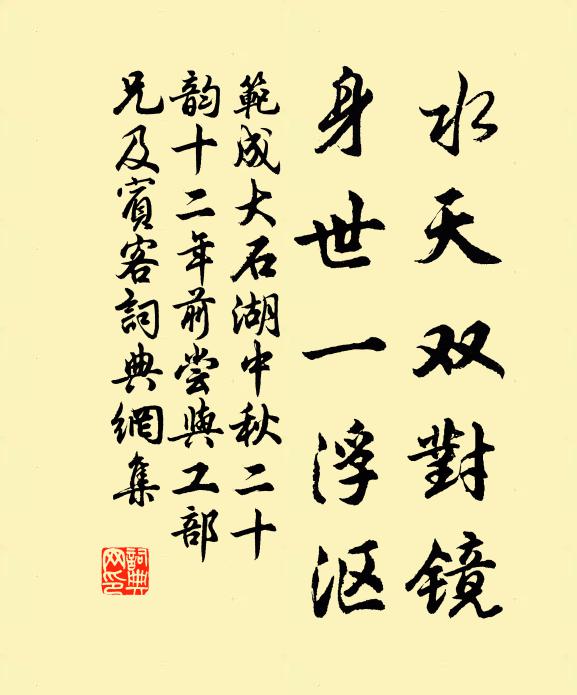 水天双對镜
身世一浮沤
範成大石湖中秋二十
韵十二年前尝與工部
兄及賓客詞典網集
詞典网印